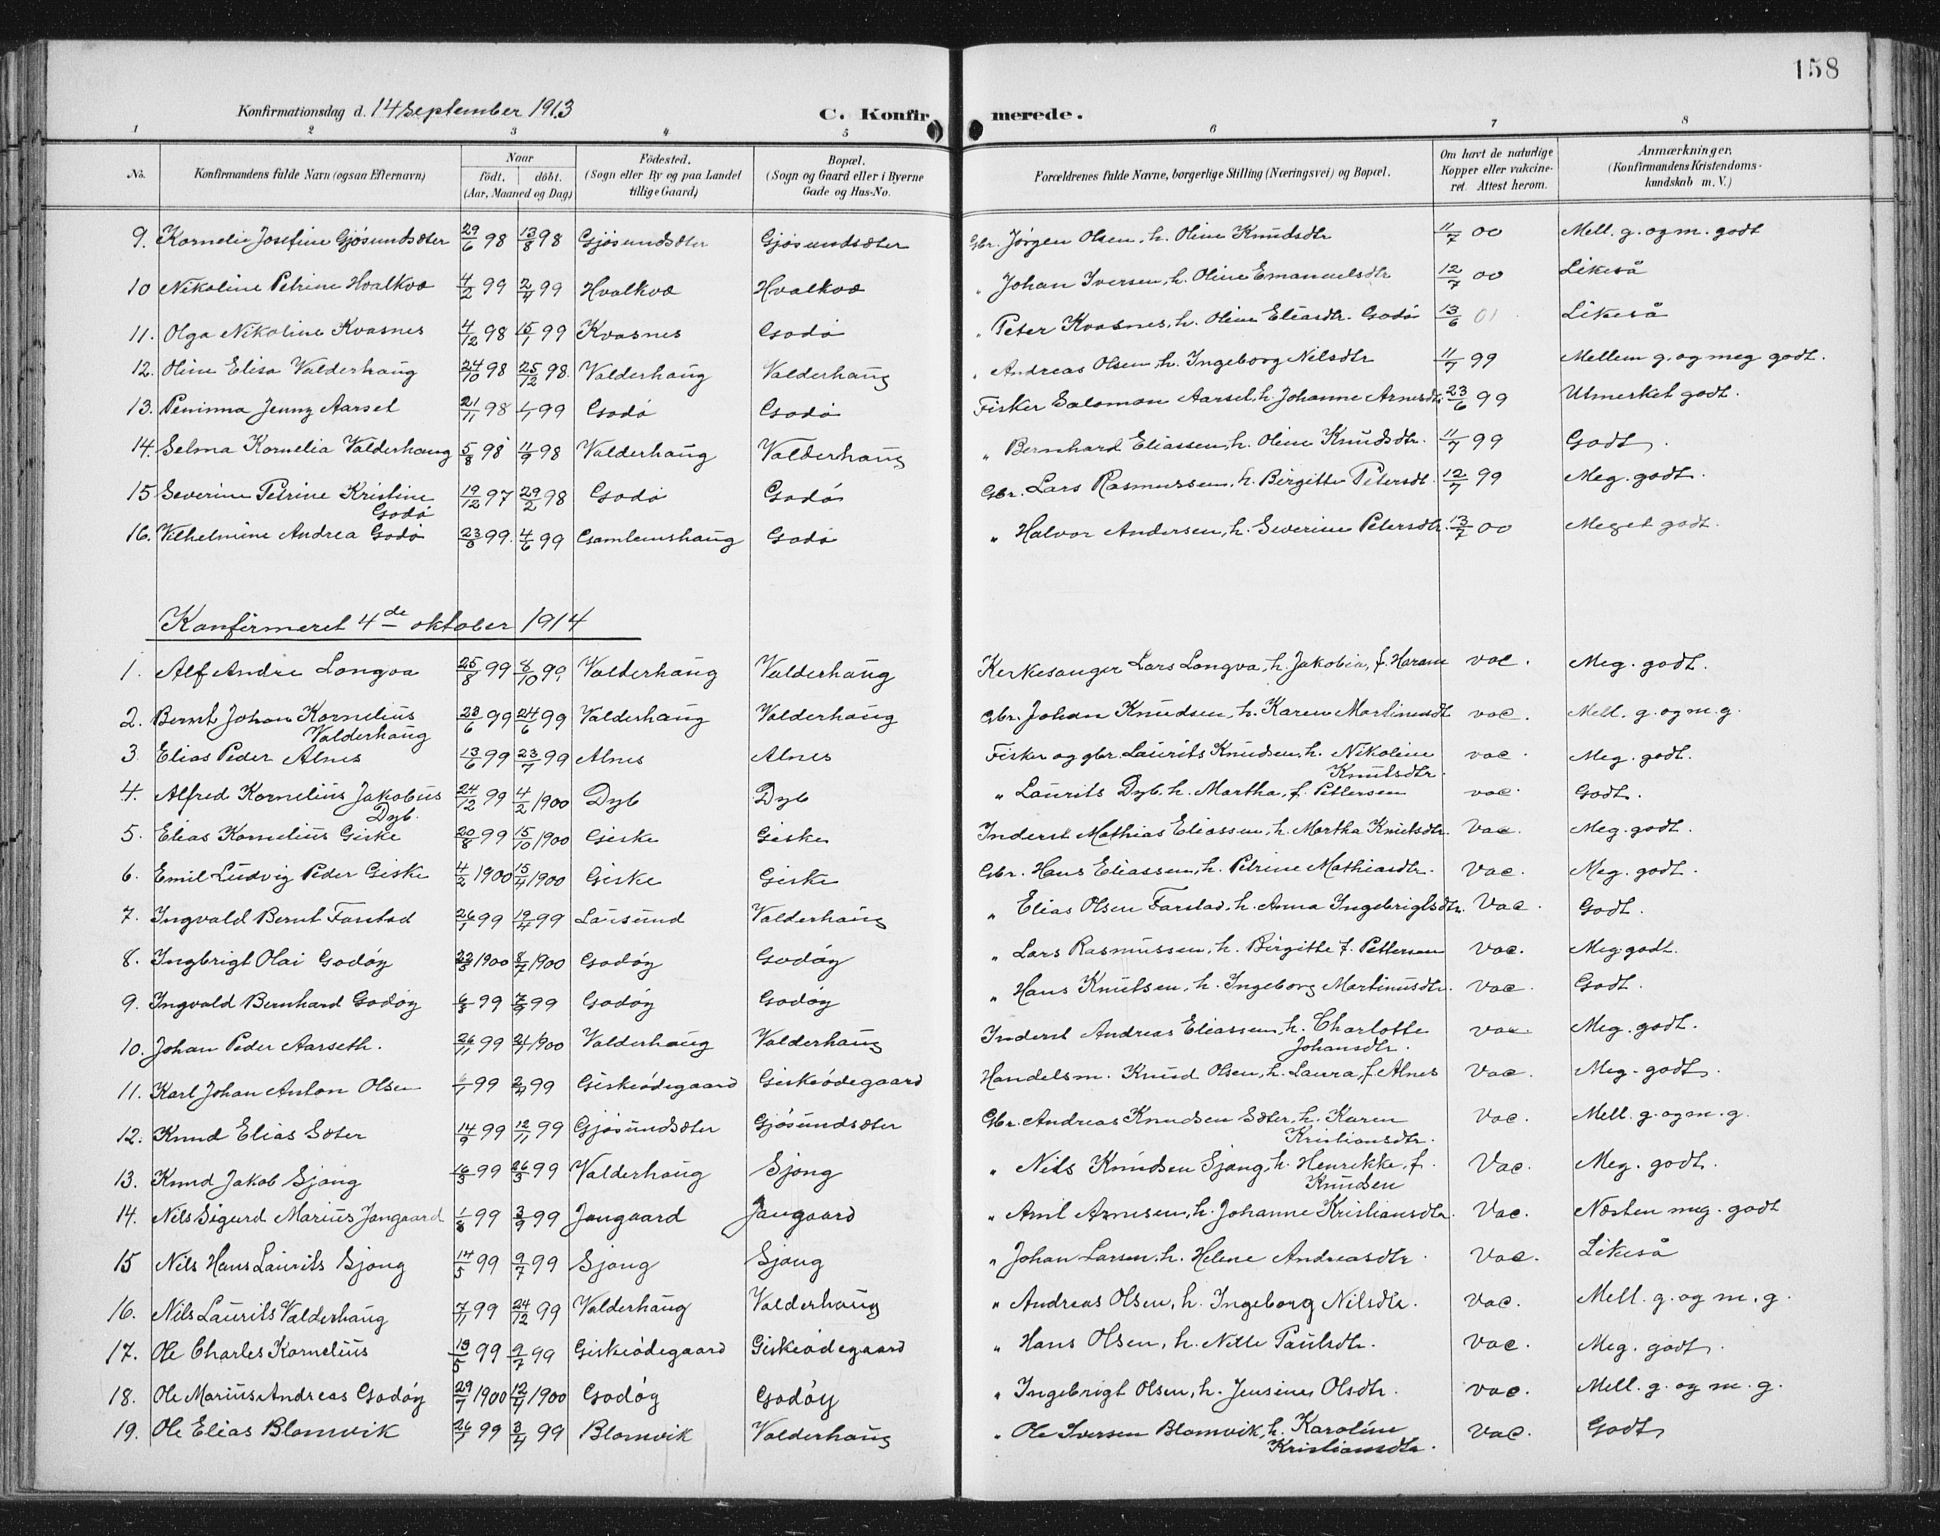 158
Konfirmationsdag d. 14 September 1913 C. Konfirmerede.
1 2 3 4 5 6 7 8
No. Konfirmandens fulde Navn (ogsaa Efternavn) Naar født. døbt. (Aar, Maaned og Dag) Födested. (Sogn eller By og paa Landet tillige Gaard) Bopæl. (Sogn og Gaard eller i Byerne Gade og Hus-No. Forældrenes fulde Navne, borgerlige Stilling (Næringsvei) og Bopæl. Om havt de naturlige Kopper eller vakcineret. Attest herom. Anmærkninger. (Konfirmandens Kristendomskundskab m. V.)
9. Kornelie Josefine Gjøsundsæter 29/6 98 13/8 98 Gjøsundsæter Gjøsundsæter Gbr. Jørgen Olsen, h. Oline Knudsdtr 11/7 00 Mell. g. og m. godt
10 Nikoline Petrine Hvalkvæ 4/2 99 2/4 99 Hvalkvæ Hvalkvæ " Johan Iversen, h. Oline Emanuelsdtr 12/7 00 Likeså
11. Olga Nikoline Kvasnes 4/12 98 15/1 99 Kvasnes Godø " Peter Kvasnes, h. Oline Eliasdtr. Godø 13/6 01 Likeså
12. Oline Elisa Valderhaug 24/10 98 25/12 98. Valderhaug Valderhaug " Andreas Olsen, h. Ingeborg Nilsdtr 11/7 99 Mellem g. og meg godt.
13. Peninna Jenny Aarset 21/11 98 1/1 99 Godø Godø Fisker Salomon Aarset, h. Johanne Arnesdtr. 23/6 99 Utmerket godt.
14. Selma Kornelia Valderhaug 5/8 98 11/9 98 Valderhaug Valderhaug " Bernhard Eliassen, h. Oline Knudsdtr. 11/7 99 Godt.
15 Severine Petrine Kristine Godø 19/12 97 29/2 98 Godø Godø Gbr. Lars Rasmussen, h. Birgitte Petersdt. 12/7 99 Meg. godt.
16. Vilhelmine Andrea Godø 23/3 99. 4/6 99 Gamlemshaug Godø " Halvor Andersen, h. Severine Petersdtr. 13/7 00 Meget godt.
Konfirmeret 4de oktober 1914
1. Alf Andre Longva 25/8 99 8/10 99 Valderhaug Valderhaug Kirkesanger Lars Longva, h. Jakobia, f. Haram vac. Meg. godt.
2. Bernt Johan Kornelius Valderhaug 23/6 99 24/6 99 Valderhaug Valderhaug Gbr. Johan Knudsen, h. Karen Martinusdt vac. Mell. g. og m. g.
3 Elias Peder Alnes 13/6 99 23/7 99 Alnes Alnes Fisker og gbr. Laurits Knudsen, h. Nikoline Knutsdtr. vac. Meg. godt.
4. Alfred Kornelius Jakobus Dyb. 24/12 99 4/2 1900 Dyb Dyb " Laurits Dyb, h. Martha, f. Pettersen vac. Godt.
5. Elias Kornelius Giske 20/8 99 15/10 1900 Giske Giske Inderst Mathias Eliassen, h. Martha Knutsdtr. Vac. Meg. godt.
6. Emil Ludvig Peder Giske 4/2 1900 15/4 1900 Giske Giske Gbr. Hans Eliassen, h. Petrine Mathiasdtr. Vac. Meg. godt.
7. Ingvald Bernt Farstad 26/1 99 19/4 99 Lausund Valderhaug " Elias Olsen Farstad, h. Anna Ingebrigtsdtr. Vac. Godt.
8. Ingbrigt Olai Godøy 22/3 1900 8/7 1900 Godøy Godøy " Lars Rasmussen, h. Birgitte f. Pettersen Vac. Meg. godt.
9. Ingvald Bernhard Godøy 6/8 99 7/9 99 Godøy Godøy " Hans Knutsen, h. Ingeborg Martinusdtr. Vac. Godt.
10. Johan Peder Aarseth. 26/11 99 21/1 1900 Valderhaug Valderhaug Inderst Andreas Eliassen, h. Charlotte Johansdtr. Vac. Meg. godt.
11. Karl Johan Anton Olsen 6/1 99 2/4 99 Giskeødegaard Giskeødegaard Handelsm. Knud Olsen, h. Laura, f. Alnes Vac. Meg. godt.
12. Knud Elias Sæter 14/9 99 12/11 99 Gjøsundsæter Gjøsundsæter Gbr. Andreas Knudsen Sæter, h. Karen Kristiansdtr. Vac. Mell. g. og m. g.
13. Knud Jakob Sjong 16/3 99 26/3 99 Valderhaug Sjong " Nils Knudsen Sjong, h. Henrikke, f. Knudsen Vac. Meg. godt.
14. Nils Sigurd Marius Jangaard 1/8 99 3/9 99 Jangaard Jangaard " Anil Arnesen, h. Johanne Kristiansdtr. Vac. Næsten meg. godt
15 Nils Hans Laurits Sjong 14/5 99 9/7 99 Sjong Sjong " Johan Larsen, h. Helene Andreasdtr. Vac. Likeså
16. Nils Laurits Valderhaug 7/11 99 24/12 99 Valderhaug Valderhaug " Andreas Olsen, h. Ingeborg Nilsdtr. Vac. Mell. g. og m. g.
17. Ole Charles Kornelius 13/5 99 9/7 99 Giskeødegaard Giskeødegaard " Hans Olsen, h. Nille Paulsdtr. Vac. Meg. godt.
18. Ole Marius Andreas Godøy 29/1 1900 12/4 1900 Godøy Godøy " Ingebrigt Olsen, h. Jensine, Olsdtr. vac. Mell. g. og m. g.
19. Ole Elias Blomvik 26/1 99 3/4 99 Blomvik Valderhaug " Ole Iversen Blomvik, h. Karoline Kristiansdtr. Vac. Godt